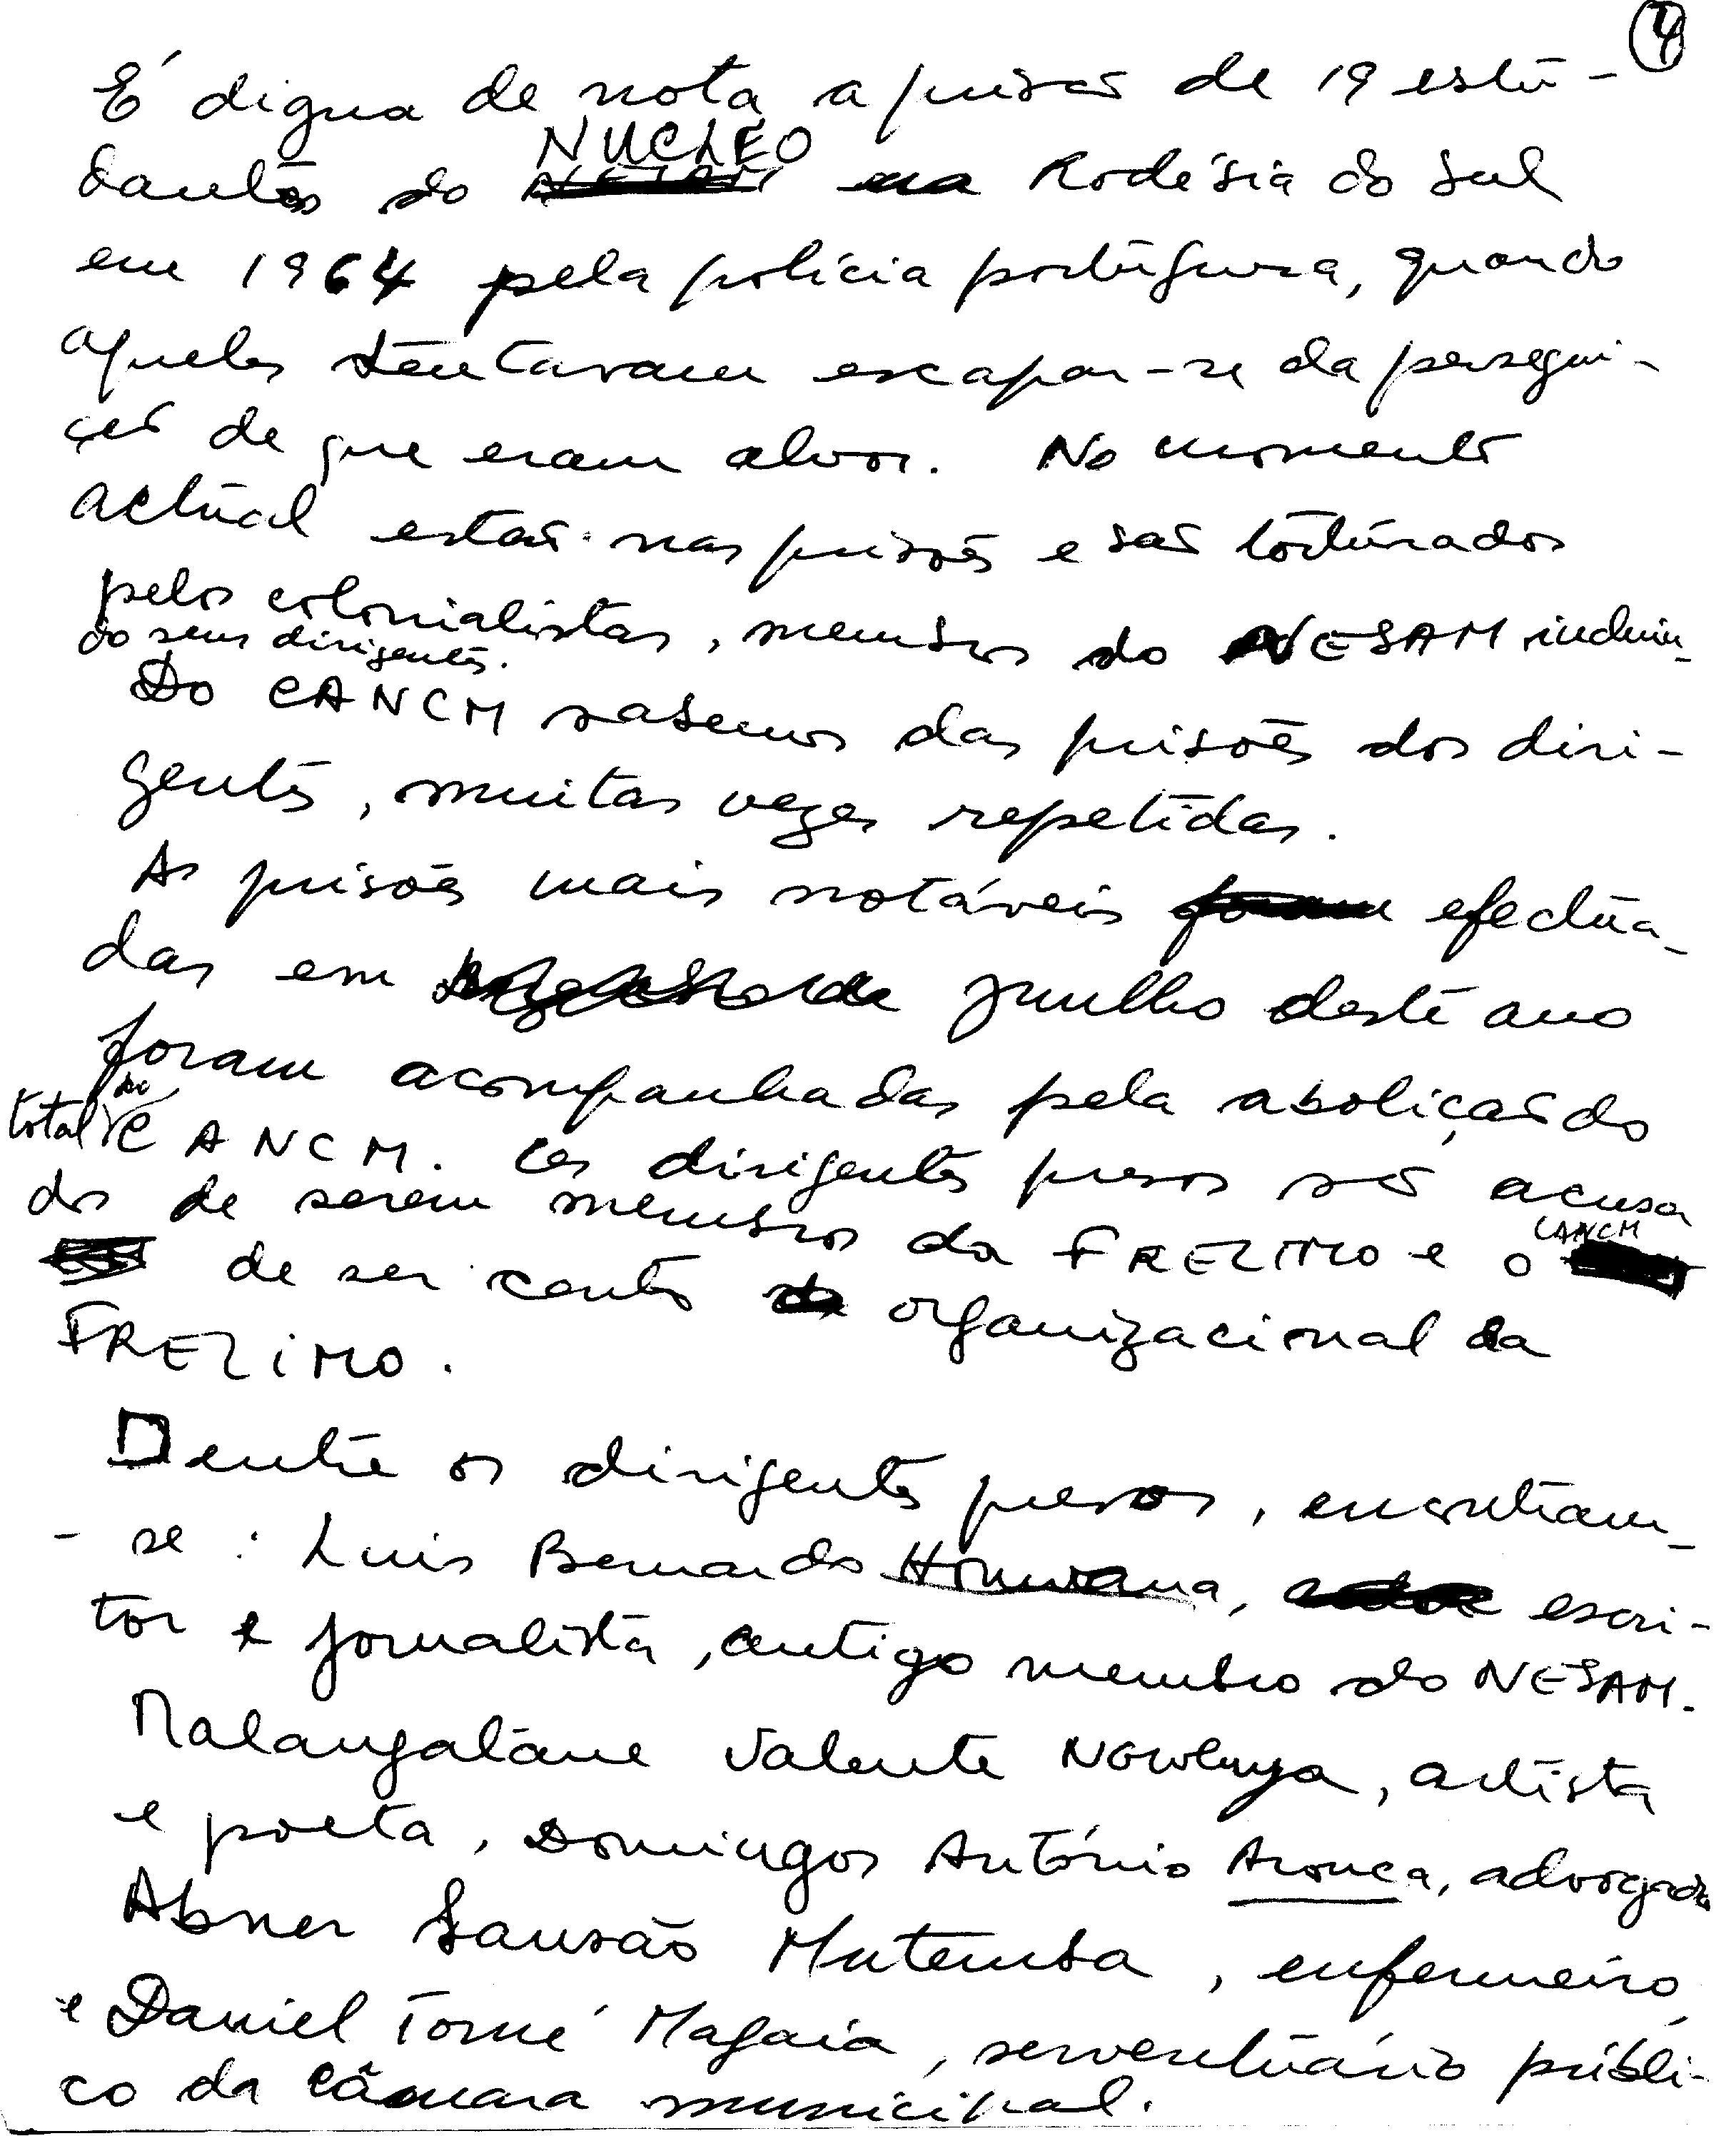 4
É digna de nota a prisão de 19 estu-
dantes do NUCLEO na Rodésia do Sul
em 1964 pela polícia portuguesa, quando
aqueles tentavam escapar-se da persegui-
ção de que eram alvos. No momento
actual estão nas prisões e são torturados
pelos colonialistas, membros do NESAM incluin-
do seus dirigentes.
Do CANCM sabemos das prisões dos diri-
gentes, muitas vezes repetidas.
As prisões mais notáveis foram efectua-
das em Junlho deste ano
foram acompanhadas pela abolição do
total do CANCM. Os dirigentes presos são acusa
dos de serem membros da FRELIMO e o CANCM
de ser centro organizacional da
FRELIMO.
Dentre os dirigentes presos, encontram-
-se: Luis Bernardo Honwana, escri-
tor e jornalista, antigo membro do NESAM.
Malangatana Valente Ngwenya, artista
e poeta, Domingos António Arouca, advogado
Abner Sansão Mutemba, enfermeiro,
e Daniel Tomé Magaia, serventuário públi-
co da Câmara municipal.